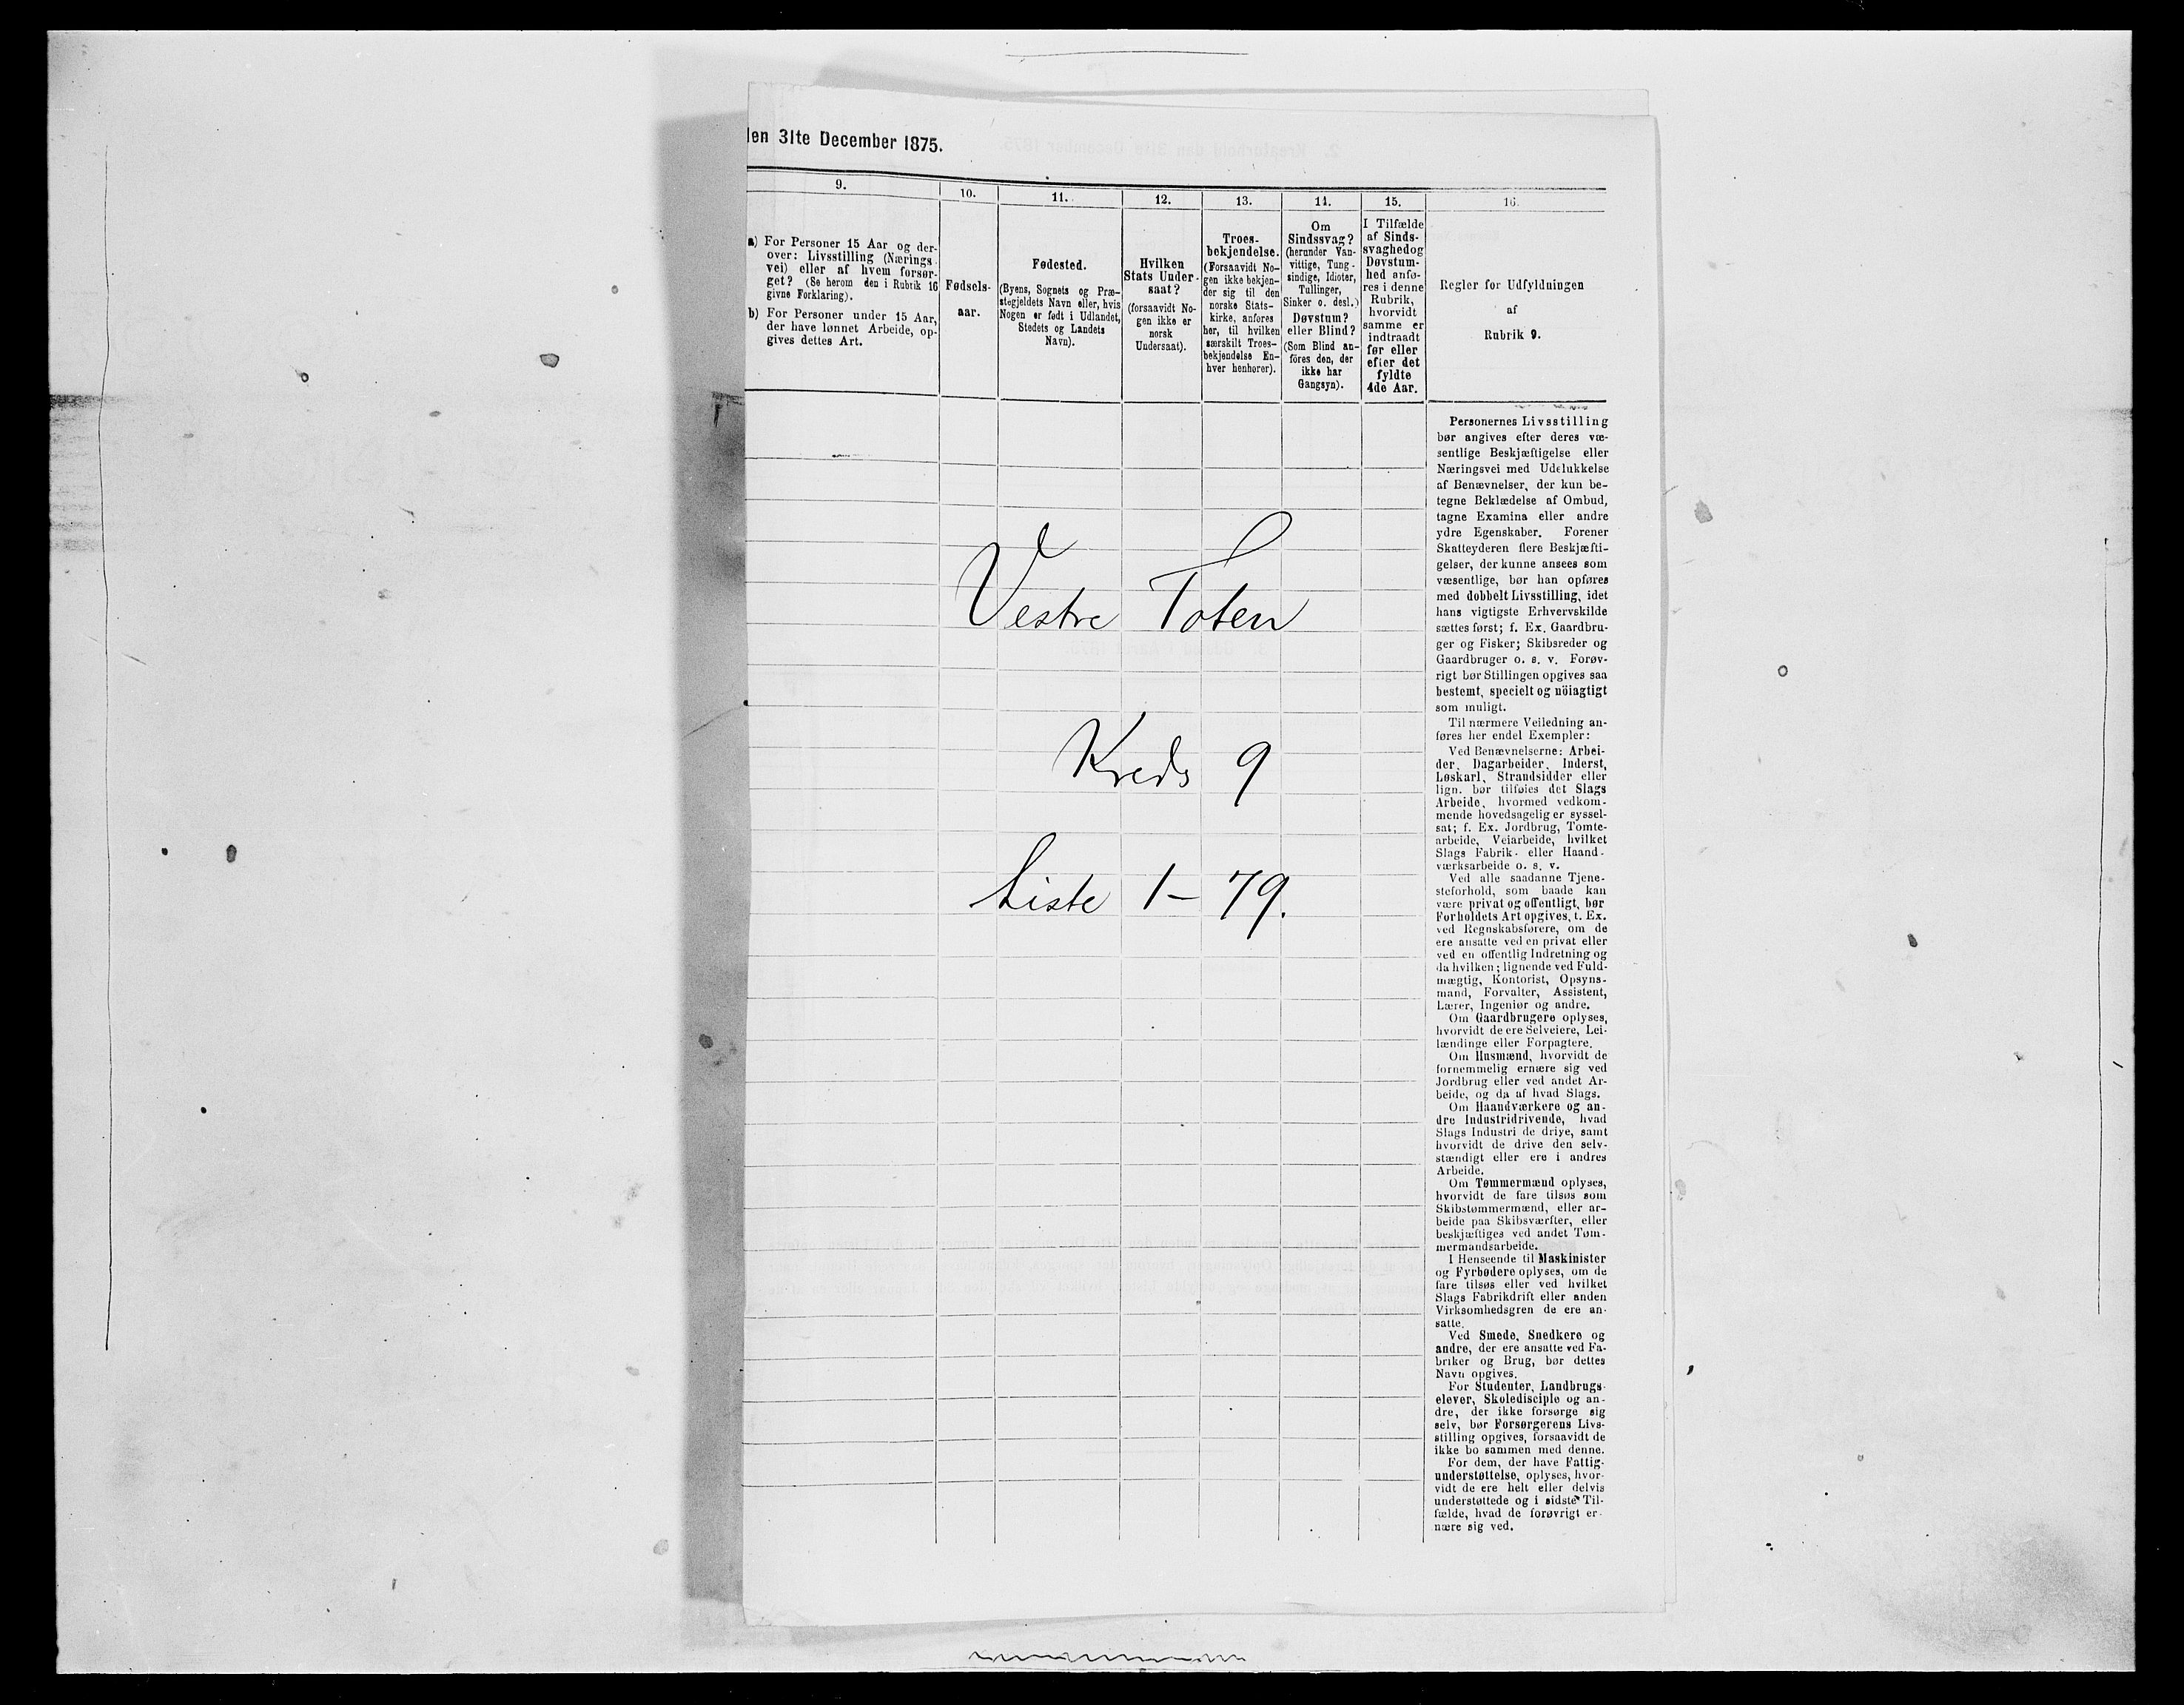 den 31te December 1875.
9.
10.
11.
12.
13.
14.
15.
16.
a) For Personer 15 Aar og der-
over: Livsstilling (Nærings-
vei) eller af hvem forsør-
get? (Se herom den i Rubrik 16
givne Forklaring).
b) For Personer under 15 Aar,
der have lønnet Arbeide, op-
gives dettes Art.
Fødsels-
aar.
Fødested.
(Byens, Sognets og Præ-
stegjeldets Navn eller, hvis
Nogen er født i Udlandet,
Stedets og Landets
Navn).
Hvilken
Stats Under-
saat?
(forsaavidt No-
gen ikke er
norsk
Undersaat).
Troes-
bekjendelse.
(Forsaavidt No-
gen ikke bekjen-
der sig til den
norske Stats-
kirke, anføres
her, til hvilken
særskilt Troes-
bekjendelse En-
hver henhører).
Om
Sindssvag?
(herunder Van-
vittige, Tung-
sindige, Idioter,
Tullinger,
Sinker o. desl.)
Døvstum?
eller Blind?
(Som Blind an-
føres den, der
ikke har
Gangsyn).
I Tilfælde
af Sinds-
svaghed og
Døvstum-
hed anfø-
res i denne
Rubrik,
hvorvidt
samme er
indtraadt
før eller
efter det
fyldte
4de Aar.
Regler for Udfyldningen
af
Rubrik 9.
Vestre Toten
Kreds 9
Liste 1-79.
Personernes Livsstilling
bør angives efter deres væ-
sentlige Beskjæftigelse eller
Næringsvei med Udelukkelse
af Benævnelser, der kun be-
tegne Beklædelse af Ombud,
tagne Examina eller andre
ydre Egenskaber. Forener
Skatteyderen flere Beskjæfti-
gelser, der kunne ansees som
væsentlige, bør han opføres
med dobbelt Livsstilling, idet
hans vigtigste Erhvervskilde
sættes først; f. Ex. Gaardbru-
ger og Fisker; Skibsreder og
Gaardbruger o. s. v. Forøv-
rigt bør Stillingen opgives saa
bestemt, specielt og nöiagtigt
som muligt.
Til nærmere Veiledning an-
føres her endel Exempler:
Ved Benævnelserne: Arbei-
der, Dagarbeider, Inderst,
Løskarl, Strandsidder eller
lign. bør tilføies det Slags
Arbeide, hvormed vedkom-
mende hovedsagelig er syssel-
sat; f. Ex. Jordbrug, Tomte-
arbeide, Veiarbeide, hvilket
Slags Fabrik- eller Haand-
værksarbeide o. s. v.
Ved alle saadanne Tjene-
steforhold, som baade kan
være privat og offentligt, bør
Forholdets Art opgives, t. Ex.
ved Regnskabsførere, om de
ere ansatte ved en privat eller
ved en offentlig Indretning og
da hvilken; lignende ved Fuld-
mægtig, Kontorist, Opsyns-
mand, Forvalter, Assistent,
Lærer, Ingeniør og andre.
Om Gaardbrugere oplyses,
hvorvidt de ere Selveiere, Lei-
lændinge eller Forpagtere.
Om Husmænd, hvorvidt de
fornemmelig ernære sig ved
Jordbrug eller ved andet Ar-
beide, og da af hvad Slags.
Om Haandværkere og an-
dre Industridrivende, hvad
Slags Industri de drive, samt
hvorvidt de drive den selv-
stændigt eller ere i andres
Arbeide.
Om Tømmermænd oplyses,
hvorvidt de fare tilsøs som
Skibstømmermænd, eller ar-
beide paa Skibsværfter, eller
beskjæftiges ved andet Tøm-
mermandsarbeide.
I Henseende til Maskinister
og Fyrbødere oplyses, om de
fare tilsøs eller ved hvilket
Slags Fabrikdrift eller anden
Virksomhedsgren de ere an-
satte.
Ved Smede, Snedkere og
andre, der ere ansatte ved Fa-
briker og Brug, bør dettes
Navn opgives.
For Studenter, Landbrugs-
elever, Skoledisciple og an-
dre, der ikke forsørge sig
selv, bør Forsørgerens Livs-
stilling opgives, forsaavidt de
ikke bo sammen med denne.
For dem, der have Fattig-
understøttelse, oplyses, hvor-
vidt de ere helt eller delvis
understøttede og i sidste Til-
fælde, hvad de forøvrigt er-
nære sig ved.